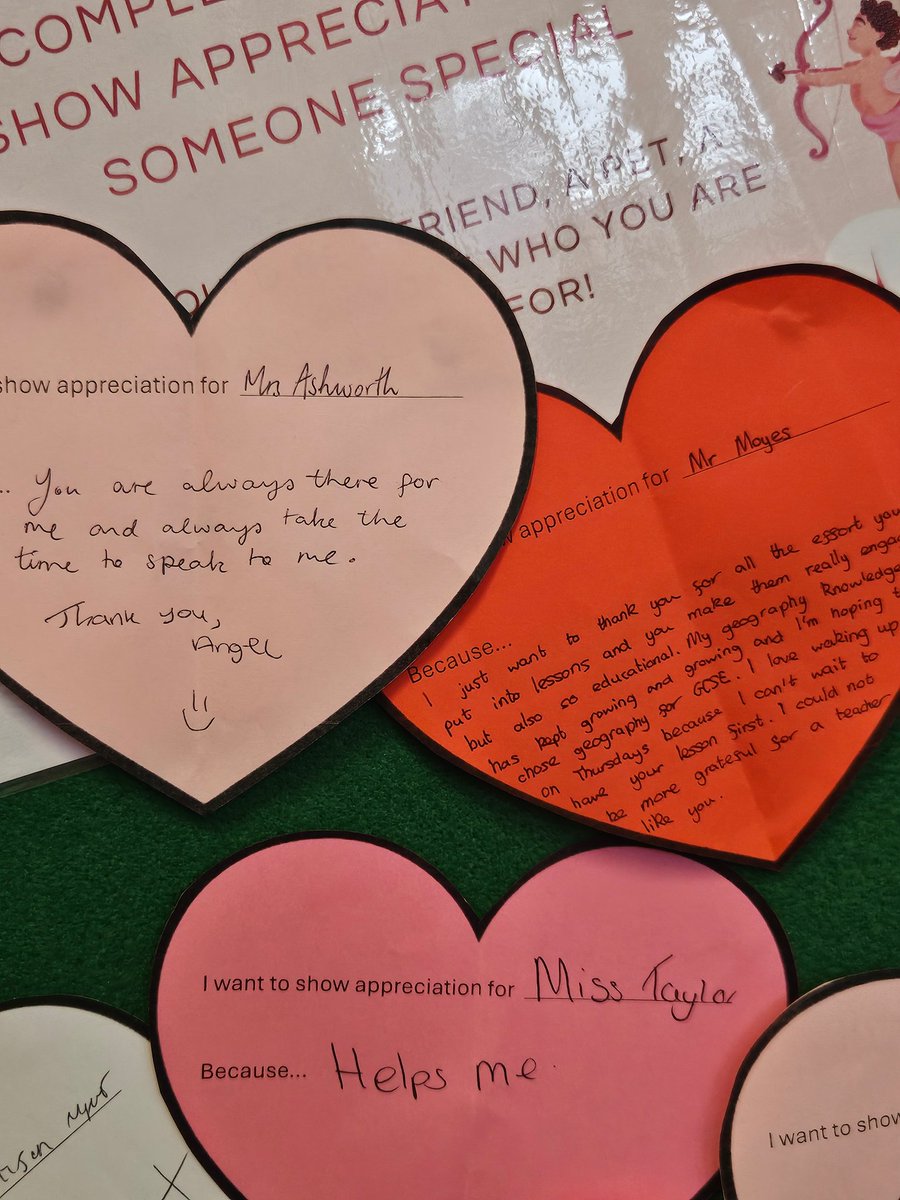 SHOW APPRECIAT
SOMEONE SPECIAL
FRIEND, A PET, A
WHO YOU ARE
FOR!
show appreciation for Mrs Ashworth
.. You are always there for
me and always take the
time to speak to me.
Thank you,
Angel
appreciation for Mr Moyes
Because...
I just want to thank you for all the effort you
put into lessons and you make them really engag
but also so educational. My geography knowledge
has kept growing and growing and I'm hoping t
chose geography for GCSE. I love waking up
on Thursdays because I can't wait to
have your lesson first. I could not
be more grateful for a teacher
like you.
I want to show appreciation for Miss Taylor
Because... Helps me.
I want to show